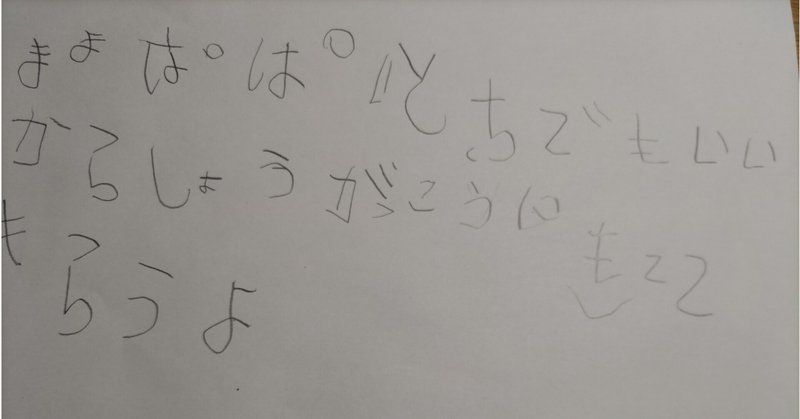 まま ぱぱ どちでもいい
からしょうがっこうに
もらうよ